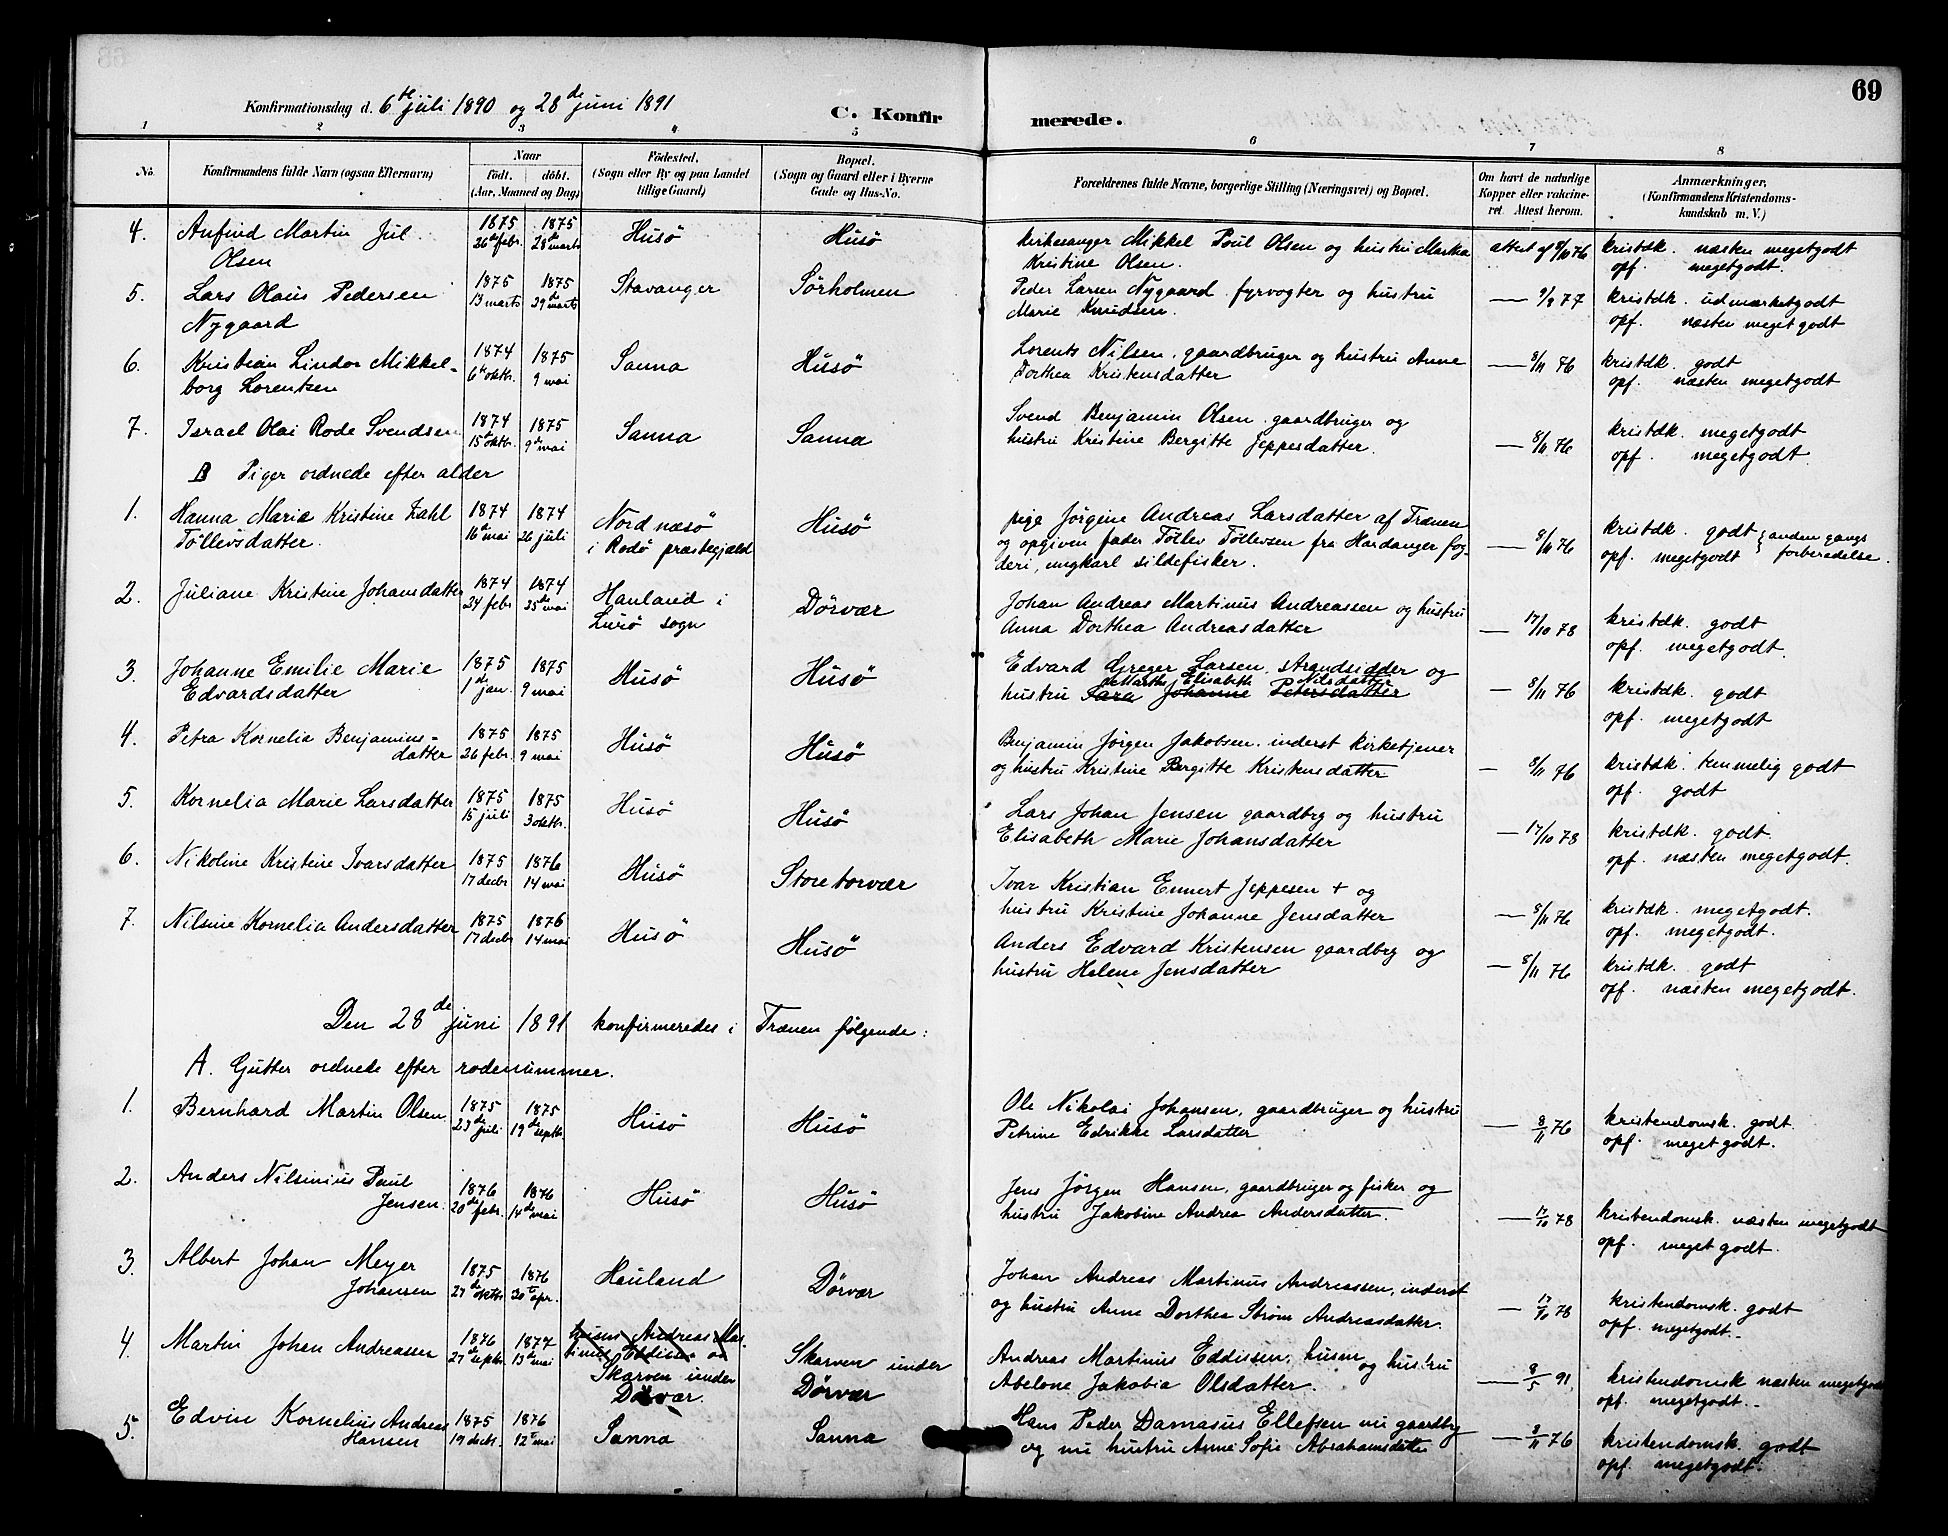 69
Konfirmationsdag d. 6te juli 1890 og 28de juni 1891
C. Konfirmerede.
1 2 3 4 5 6 7 8
No.
Konfirmandens fulde Navn (ogsaa Efternavn)
Naar
født. døbt.
(Aar, Maaned og Dag)
Fødested.
(Sogn eller By og paa Landet tillige Gaard)
Bopæl.
(Sogn og Gaard eller i Byerne Gade og Hus-No.
Forældrenes fulde Navne, borgerlige Stilling (Næringsvei) og Bopæl.
Om havt de naturlige Kopper eller vakcineret. Attest herom.
Anmærkninger,
(Konfirmandens Kristendomskundskab m. V.)
4. Anfind Martin Jul Olsen 1875 26de febr. 1875 28de marts Husö Husö
kirkesanger Mikkel Poul Olsen og hustru Martha
Kristine Olsen. attest af 8/11 76 kristdk. næsten megetgodt
opf. megetgodt.
5. Lars Olaus Pedersen Nygaard 1875 13 marts 1875 29de marts Stavanger Sørholmen
Peder Larsen Nygaard fyrvogter og hustru
Marie Knudsen. — 9/8 77 kristdk. udmærketgodt
opf. næsten megetgodt
6. Kristian Lindor Mikkelborg Lorentsen 1874 6te oktbr. 1875 9 mai Sanna Husö
Lorents Nilsen, gaardbruger og hustru Anne
Dorthea Kristensdatter — 8/11 76 kristdk. godt
opf. næsten megetgodt
7. Israel Olai Rode Svendsen 1874 15de oktbr. 1875 9de mai Sanna Sanna
Svend Benjamin Olsen gaardbruger og
hustru Kristine Bergitte Jeppesdatter. — 8/11 76 kristdk. megetgodt
opf. megetgodt.
B Piger ordnede efter alder
1. Hanna Marie Kristine Zahl Töllevsdatter. 1874 16de mai 1874 26 juli Nordnæsö i Rodö præstegjæld Husö
pige Jörgine Andreas Larsdatter af Trænen
og opgiven fader Töllev Töllevsen fra Hardanger fog-
deri, ungkarl sildefisker. — 8/11 76 kristdk. godt } anden gangs
opf. megetgodt } forberedelse.
2. Juliane Kristine Johansdatter 1874 24 febr. 1874 25de mai Hauland i Lurö sogn Dörvær
Johan Andreas Martinus Andreassen og hustru
Anna Dorthea Andreasdatter — 17/10 78 kristdk. godt
opf. megetgodt.
3. Johanne Emilie Marie Edvardsdatter 1875 1de jan. 1875 9 mai Husö Husö
Edvard Greger Larsen, strandsidder og
Marthe Elisabeth Nilsdatter
hustru Sara Johanne Petersdatter — 8/11 76 kristdk. godt
opf. megetgodt
4. Petra Kornelia Benjaminsdatter 1875 26 febr. 1875 9 mai Husö Husö
Benjamin Jörgen Jakobsen. inderst kirketjener
og hustru Kristine Bergitte Kristensdatter — 8/11 76 kristdk. temmelig godt
opf. godt
5. Kornelia Marie Larsdatter 1875 15 juli 1875 3 oktbr. Husö Husö
Lars Johan Jensen gaardbrg og hustru
Elisabeth Marie Johansdatter — 17/10 78 kristdk. godt.
opf. næsten megetgodt.
6. Nikoline Kristine Ivarsdatter 1875 17 decbr 1876 14 mai Husö Store torvær
Ivar Kristian Ennert Jeppesen + og
hustru Kristine Johanne Jensdatter — 8/11 76 kristdk. megetgodt.
opf. megetgodt.
7. Nilsine Kornelia Andersdatter 1875 17 decbr 1876 14 mai Husö Husö
Anders Edvard Kristensen gaardbrg og
hustru Helene Jensdatter — 8/11 76 kristdk. godt
opf. næsten megetgodt.
Den 28de juni 1891 konfirmeredes i Trænen følgende:
A. Gutter ordnede efter rodenummer.
1. Bernhard Martin Olsen 1875 23de juli 1875 19de septbr. Husö Husö
Ole Nikolai Johansen, gaardbruger og hustru
Petrine Edrikke Larsdatter — 8/11 76 kristendomsk. godt.
opf. megetgodt.
2. Anders Nilsinius Paul Jensen. 1876 20de febr. 1876 14de mai Husö Husö
Jens Jørgen Hansen, gaardbruger og fisker og
hustru Jakobine Andrea Andersdatter. — 17/10 78 kristendomsk. næsten megetgodt
opf. megetgodt.
3. Albert Johan Meyer Johansen 1875 27de oktbr 1876 30te apr. Hauland Dörvær
Johan Andreas Martinus Andreassen, inderst
og hustru Anne Dorthea Strøm Andreasdatter. — 17/10 78 kristendomsk. godt
opf. megetgodt.
4. Martin Johan Andreasen 1876 27de septbr 1877 13de mai husm Andreas Martinus Eddisen og Skarven under Dörvær. Skarven under Dörvær
Andreas Martinus Eddissen, husm og hustru
Abelone Jakobia Olsdatter. — 9/5 91 kristendomsk næsten megetgodt
opf. megetgodt.
5. Edvin Kornelius Andreas Hansen 1875 19 decbr. 1876 12te mai Sanna Sanna
Hans Peder Damasus Ellefsen nu gaardbrg
og nu hustru Anne Sofie Abrahamsdatter — 8/11 76 kristendomsk. godt
opf. megetgodt.